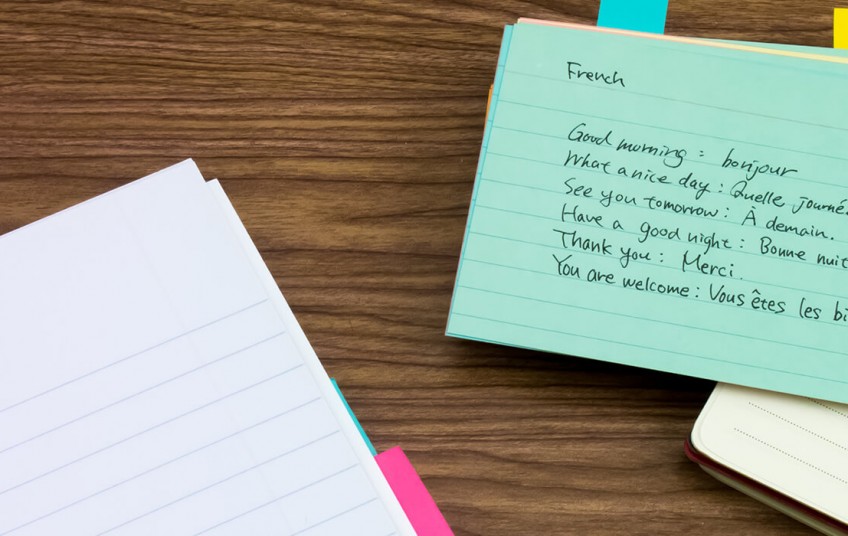 French
Good morning : bonjour
What a nice day : Quelle journé
See you tomorrow : À demain.
Have a good night : Bonne nuit
Thank you : Merci.
You are welcome : Vous êtes les bi